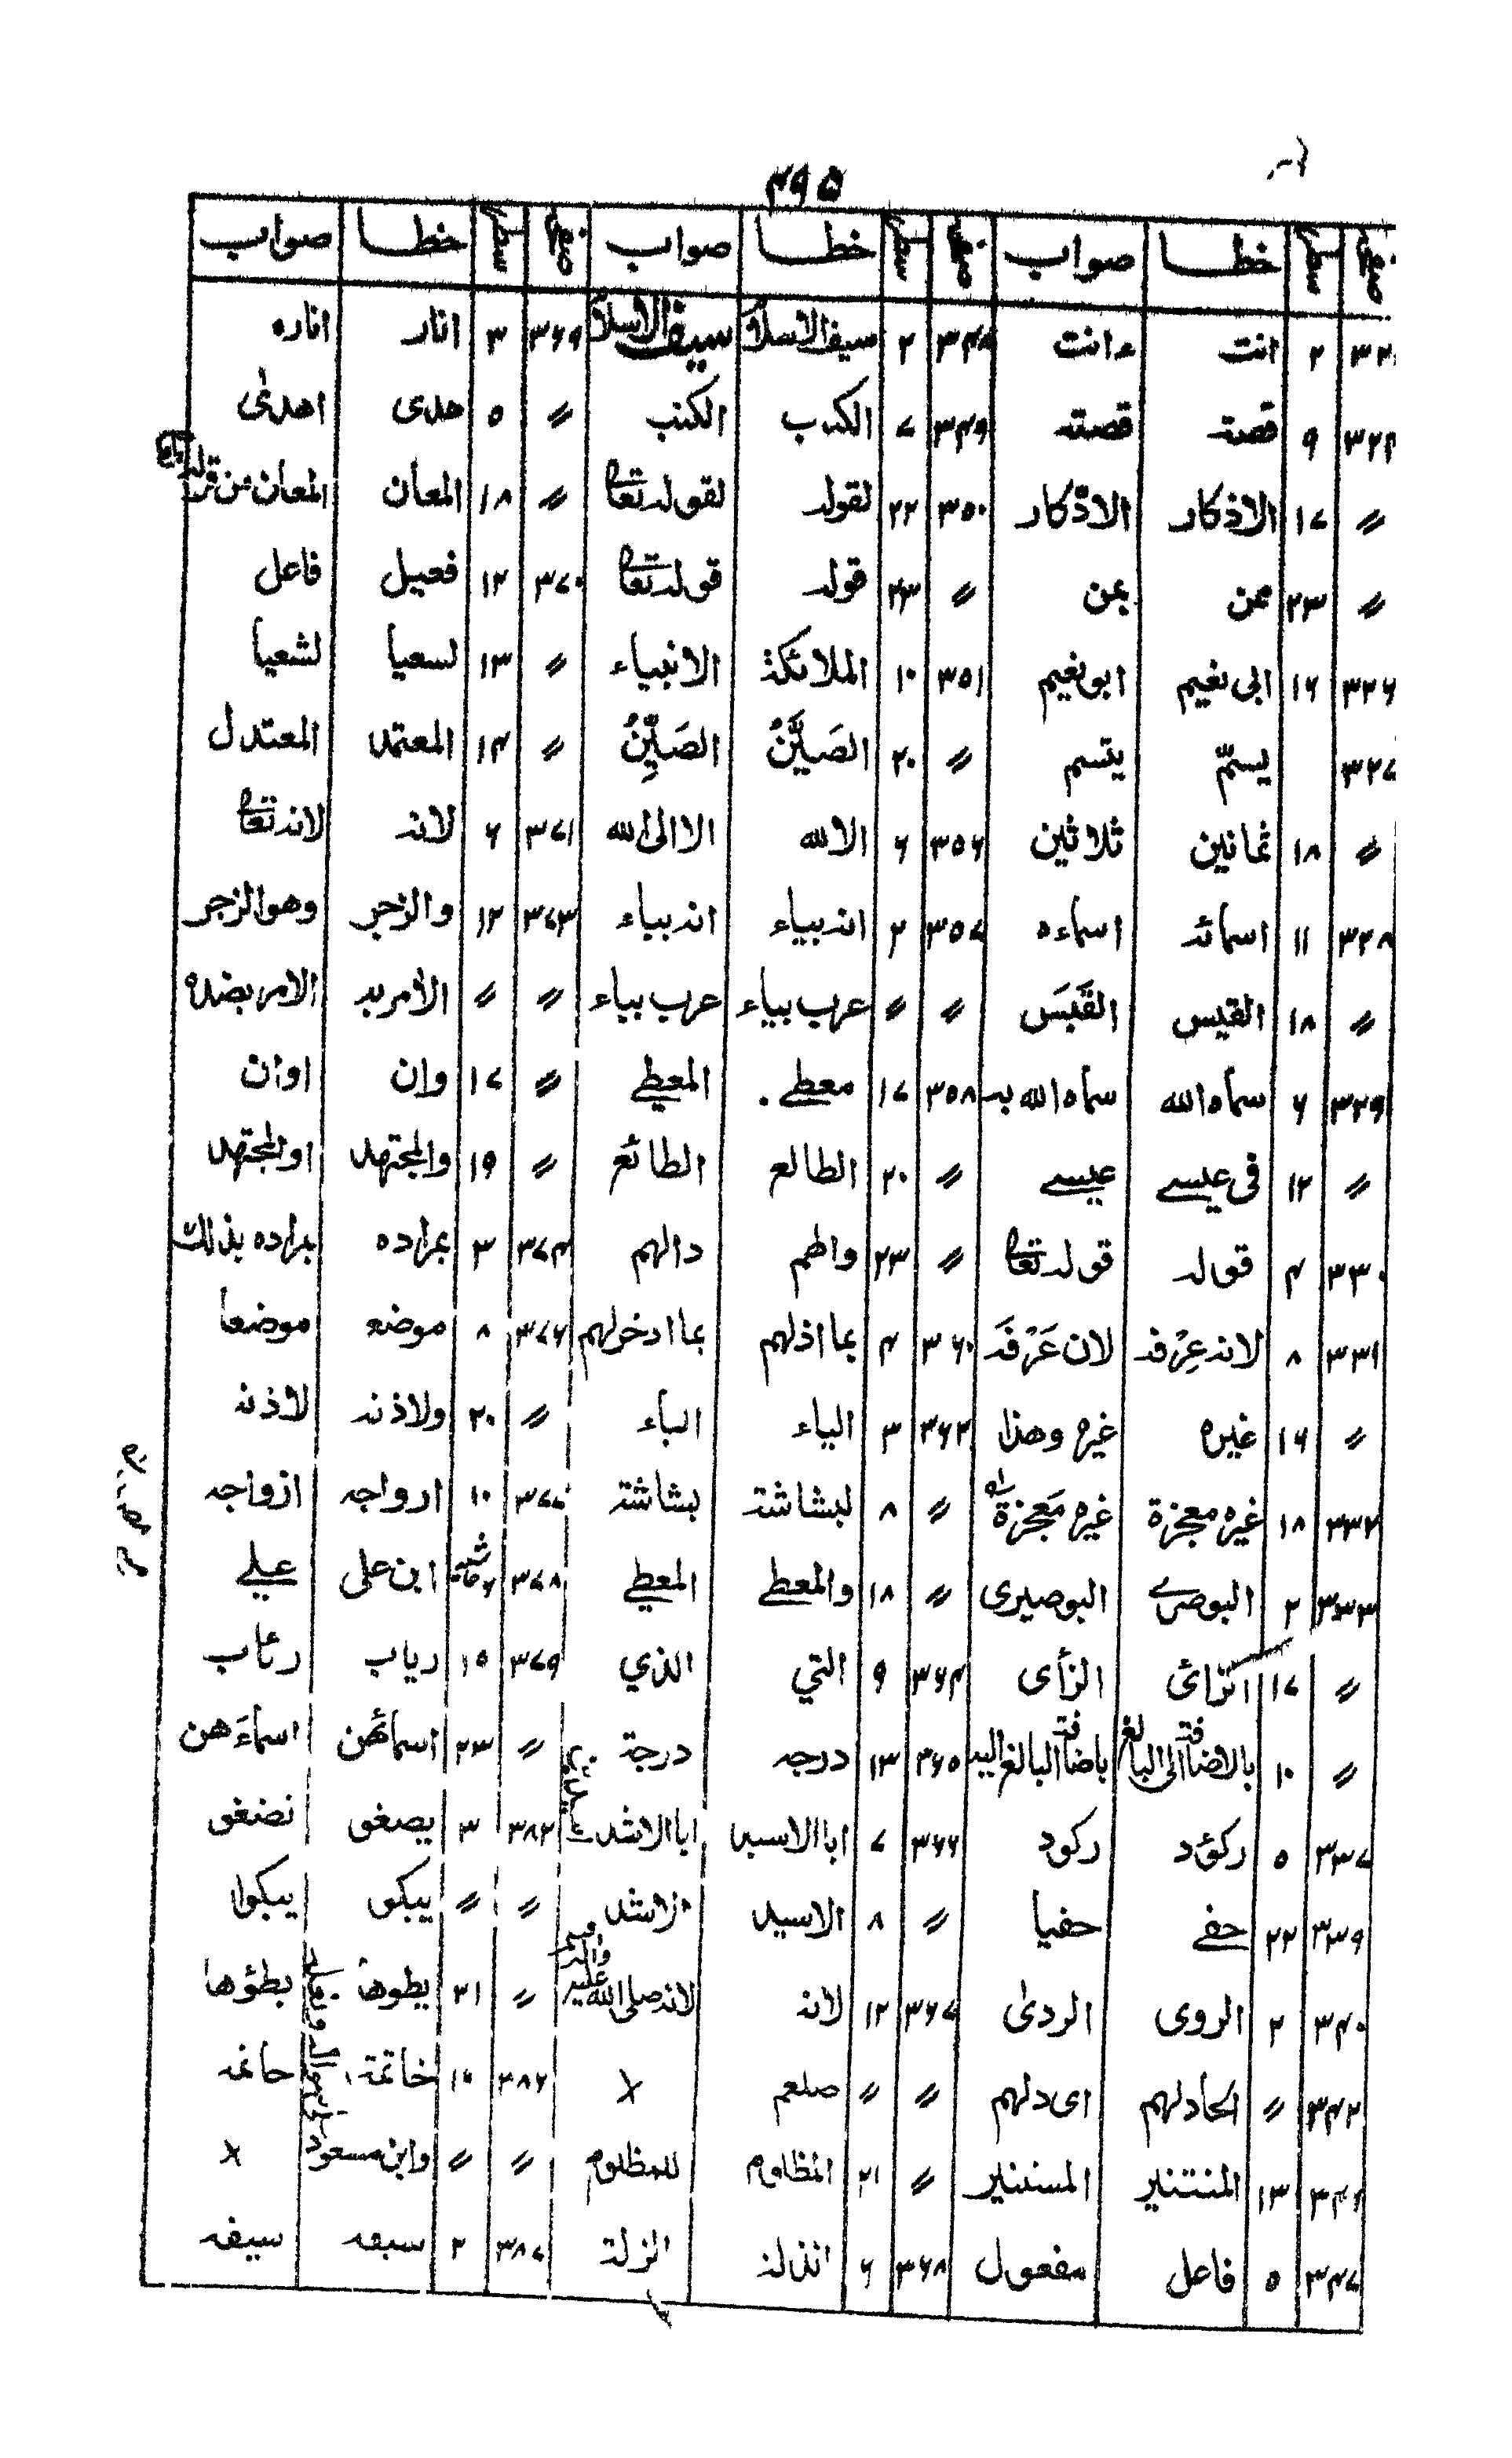 ۴۹۵
صفحہ سطر خطا صواب صفحہ سطر خطا صواب صفحہ سطر خطا صواب
۲ انت ءانت ۳۴۸ ۲ سیف الاسلام سیف الاسلام ۳۶۹ ۳ انار اناره
۳۲۴ ۹ قصته قصته ۳۴۹ ۷ الكذب الكتب 〃 ۵ هدى اهدىٰ
〃 ۱۷ الاذكار الادّكار ۳۵۰ ۲۲ لقوله لقوله تعالى 〃 ۱۸ المعان المعان من قوله
〃 ۲۳ عن بمن 〃 ۲۳ قوله قوله تعالى ۳۷۰ ۱۲ فعيل فاعل
۳۲۶ ۱۶ ابى نعيم ابو نعيم ۳۵۱ ۱۰ الملائكة الانبياء 〃 ۱۳ لسعيا لشعيا
۳۲۷ يسمّ يتسم 〃 ۲۰ الصَيَّنُ الصَيِّنُ 〃 ۱۴ المعتمد المعتدل
〃 ۱۸ ثمانين ثلاثين ۳۵۶ ۶ الا لله الا الى الله ۳۷۱ ۶ لانه لانه تعالى
۳۲۸ ۱۱ اسمائه اسماءه ۳۵۷ ۲ انه بياء انه بياء ۳۷۳ ۱۲ والزجر وهو الزجر
〃 ۱۸ القيس القَبَس 〃 〃 عرب بياء عرب بياء 〃 〃 الامر به الامر بضده
۳۲۹ ۶ سماه الله سماه الله به ۳۵۸ ۱۷ معطى المعطى 〃 ۱۷ وان اوان
〃 ۱۲ فى عيسے عيسے 〃 ۲۰ الطالع الطائع 〃 ۱۹ والمجتهد او المجتهد
۳۳۰ ۴ قوله قوله تعالى 〃 ۲۳ والهم دالهم ۳۷۴ ۳ بمراده بمراده بذلك
۳۳۱ ۸ لانه عِرْفه لان عَرْفَه ۳۶۰ ۴ بما اذلهم بما ادخولهم ۳۷۶ ۸ موضع موضعا
〃 ۱۶ غيره غيره وهذا ۳۶۲ ۳ الياء الباء 〃 ۲۰ ولاذنه لاذنه
۳۳۲ ۱۸ غيره معجزة غيره مَعجزة 〃 ۸ لبشاشة بشاشة ۳۷۷ ۱۰ ارواجه ازواجه
۳۳۳ ۲ البوصرى البوصيرى 〃 ۱۸ والمعطى المعطى ۳۷۸ ابن على على
〃 ۱۷ الزائ الزأى ۳۶۴ ۹ التي الذي ۳۷۹ ۱۵ رياب رئاب
〃 ۱۰ بالاضافة الى البالغ باضافة البالغ اليه ۳۶۵ ۱۳ درجه درجة 〃 ۲۳ اسمائهن اسماءَهن
۳۳۷ ۵ ركؤد ركود ۳۶۶ ۷ ابا الاسيد ابا الاشد ۳۸۲ ۳ يصغى نضغى
۳۳۹ ۲۲ حفے حفيا 〃 ۸ الاسيد الاشد 〃 〃 يبكى يبكوا
۳۴۰ ۲ الروى الردىٰ ۳۶۷ ۱۲ لانه لانه صلى الله عليه واله وسلم 〃 ۲۱ يطوها بطؤها
۳۴۲ 〃 الحادلهم اى دلهم 〃 〃 صلعم × ۳۸۶ ۱۰ خاتمة حاتمه
۱۳ المنتنير المستنير 〃 ۲۱ المظلوم للمظلوم 〃 〃 وابن مسعود ×
۳۴۷ ۵ فاعل مفعول ۳۶۸ ۶ انذلة الزلة ۳۸۷ ۲ سبعه سيفه